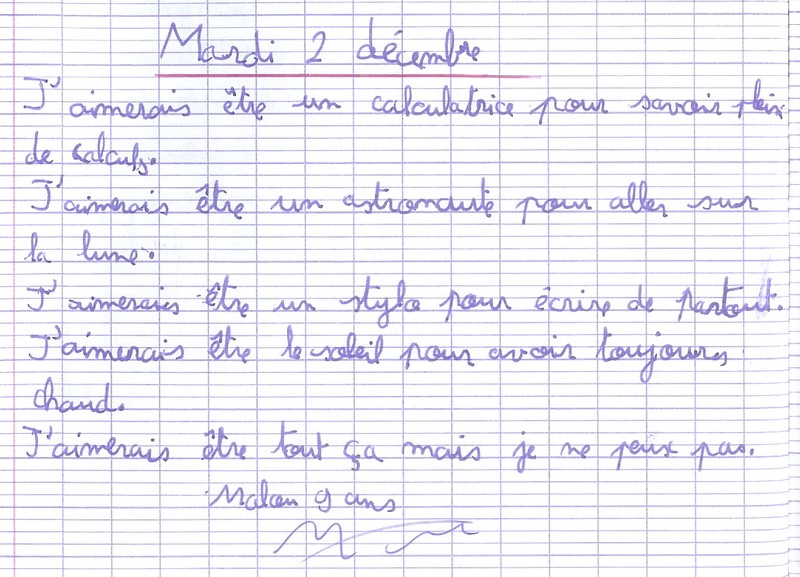 Mardi 2 décembre
J'aimerais être un calculatrice pour savoir plein
de calculs.
J'aimerais être un astronaute pour aller sur
la lune.
J'aimerais être un stylo pour écrire de partout.
J'aimerais être le soleil pour avoir toujours
chaud.
J'aimerais être tout ça mais je ne peux pas.
9 ans